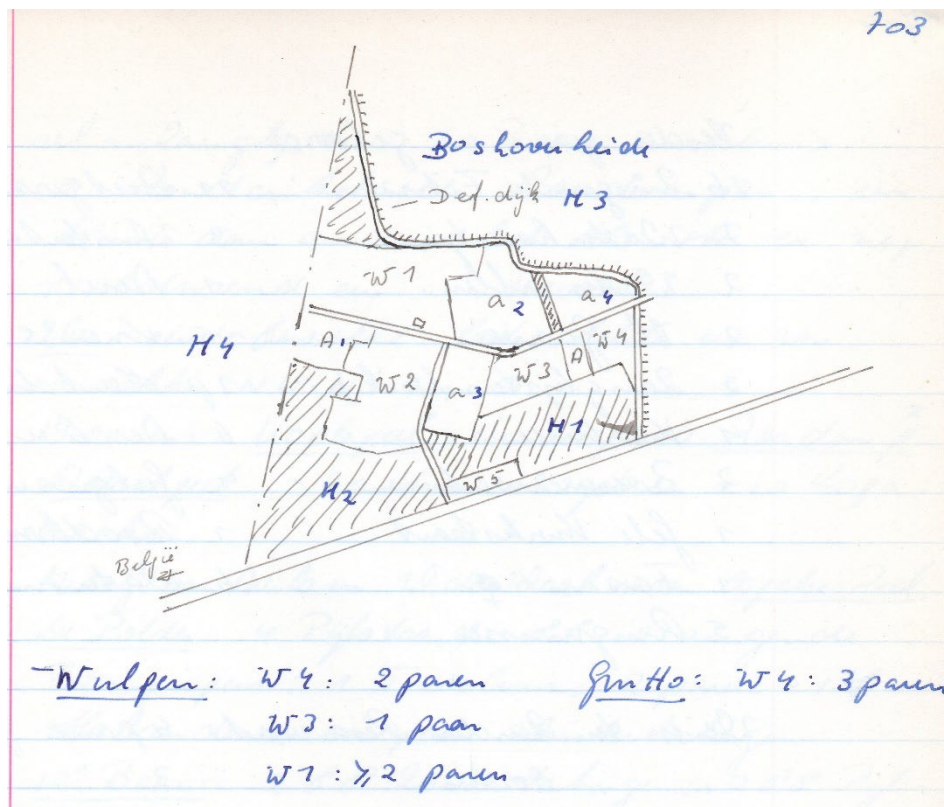 703
Boshovenheide
Def. dijk H3
W1
a2
a4
A1
H4
W2
a3
W3
A
W4
H1
H2
W5
België
Wulpen: W4: 2 paren
W3: 1 paar
W1: ≥2 paren
Grutto: W4: 3 paren